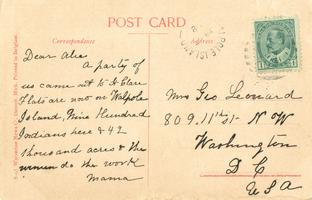 POST CARD
Correspondence
Address
Dear Alec
A party of
us came out to St Clare
Flats are now on Walpole
Island, Nine Hundred
Indians here & 42
thousand acres & the
women do the work
Mama
Mrs Geo Leonard
809. 11th St N W
Washington
D C
U S A